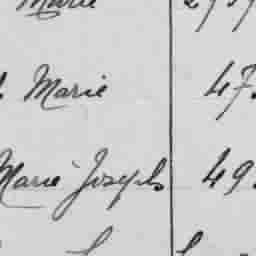 Marie
Marie 47.
Marie Joseph 49.